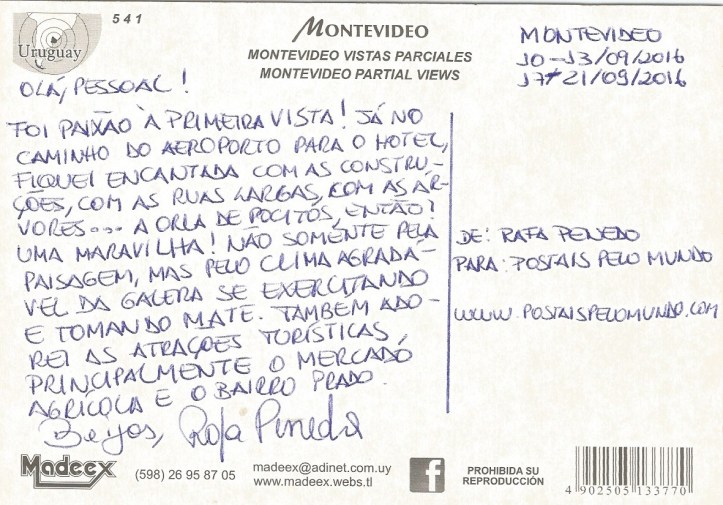 541
Uruguay
MONTEVIDEO
MONTEVIDEO VISTAS PARCIALES
MONTEVIDEO PARTIAL VIEWS
MONTEVIDEO
10-13/09/2016
17-21/09/2016
OLÁ, PESSOAL!
FOI PAIXÃO À PRIMEIRA VISTA! JÁ NO
CAMINHO DO AEROPORTO PARA O HOTEL,
FIQUEI ENCANTADA COM AS CONSTRU-
ÇÕES, COM AS RUAS LARGAS, COM AS ÁR-
VORES... A ORLA DE POCITOS, ENTÃO?
UMA MARAVILHA! NÃO SOMENTE PELA
PAISAGEM, MAS PELO CLIMA AGRADÁ-
VEL DA GALERA SE EXERCITANDO
E TOMANDO MATE. TAMBÉM ADO-
REI AS ATRAÇÕES TURÍSTICAS,
PRINCIPALMENTE O MERCADO
AGRÍCOLA E O BAIRRO PRADO.
Beijos, Rafa Penedo
DE: RAFA PENEDO
PARA: POSTAIS PELO MUNDO
WWW.POSTAISPELOMUNDO.COM
Madeex
(598) 26 95 87 05
madeex@adinet.com.uy
www.madeex.webs.tl
f
PROHIBIDA SU
REPRODUCCIÓN
4 902505 133770